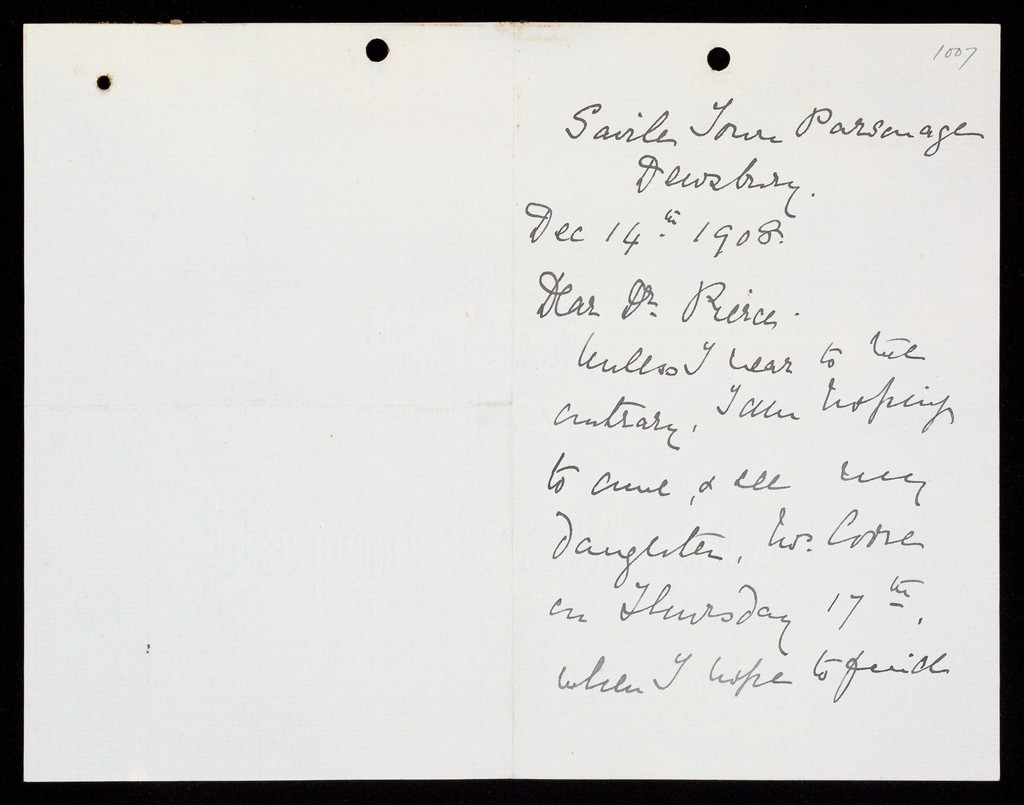 1007
Savile Town Parsonage
Dewsbury.
Dec 14th 1908.
Dear Dr. Pierce.
Unless I hear to the
contrary, I am hoping
to come, & see my
daughter, Mrs.
on Thursday 17th,
when I hope to find